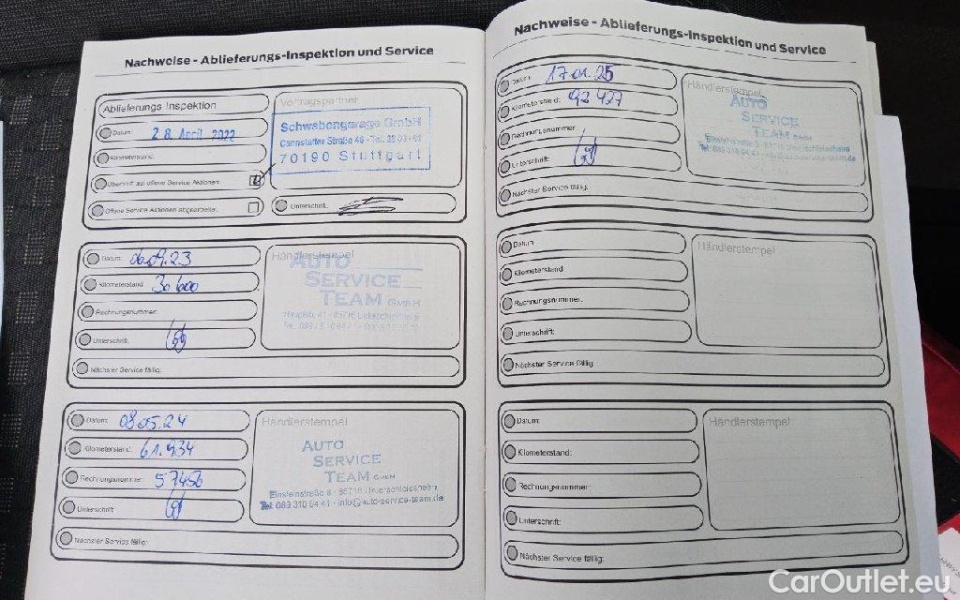 Nachweise - Ablieferungs-Inspektion und Service
Ablieferungs Inspektion
Vertragspartner
Datum: 28. April 2022
Schwabengarage GmbH
Cannstatter Straße 46 - Tel.
70190 Stuttgart
Kilometerstand:
Offene Service Aktionen
Unterschrift:
Datum: 06.09.23
Händlerstempel
AUTO
SERVICE
TEAM GmbH
Kilometerstand: 30600
Rechnungsnummer:
Unterschrift:
Nächster Service fällig:
Datum: 08.05.24
Händlerstempel
AUTO
SERVICE
TEAM GmbH
Einsteinstraße 8 - 85716 Unterschleissheim
Tel. 089 310 94 41 - info@auto-service-team.de
Kilometerstand: 61.934
Rechnungsnummer: 57456
Unterschrift:
Nächster Service fällig:
Nachweise - Ablieferungs-Inspektion und Service
Datum: 17.01.25
Händlerstempel
AUTO
SERVICE
TEAM GmbH
Kilometerstand: 92 427
Rechnungsnummer
Unterschrift:
Nächster Service fällig:
Datum:
Händlerstempel
Kilometerstand
Rechnungsnummer:
Unterschrift:
Nächster Service fällig:
Datum:
Händlerstempel
Kilometerstand:
Rechnungsnummer:
Unterschrift:
Nächster Service fällig:
CarOutlet.eu